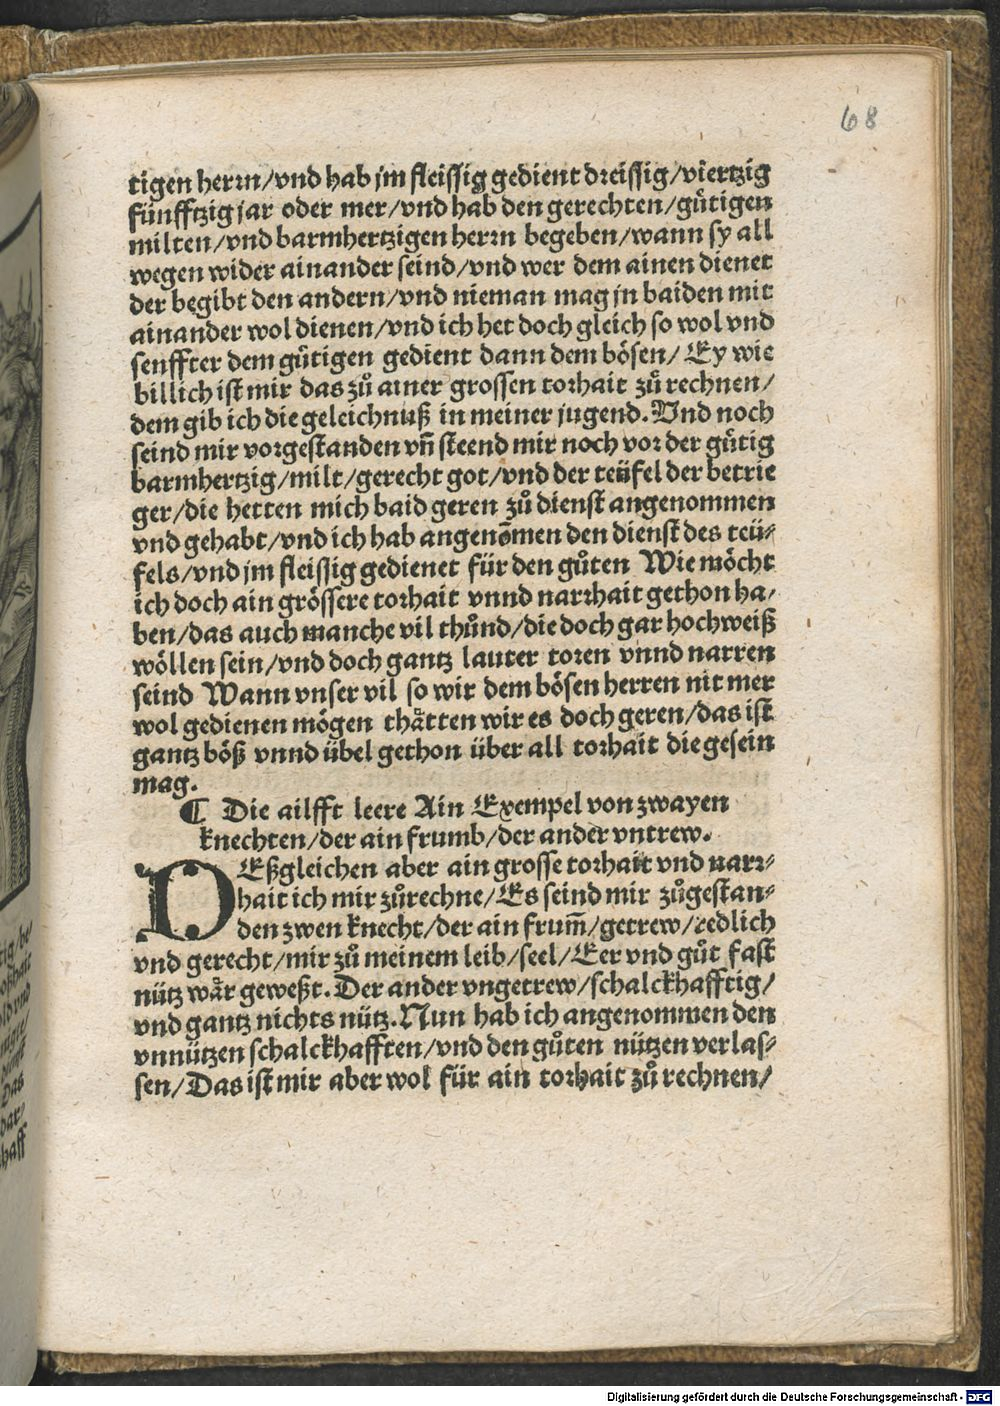 68
tigen herrn/vnd hab jm fleissig gedient dreissig/viertzig
fünfftzig jar oder mer/vnd hab den gerechten/gůtigen
milten/vnd barmhertzigen herrn begeben/wann sy all
wegen wider ainander seind/vnd wer dem ainen dienet
der begibt den andern/vnd nieman mag jn baiden mit
ainander wol dienen/vnd ich het doch gleich so wol vnd
senffter dem gůtigen gedient dann dem bösen/ Ey wie
billich ist mir das zů ainer grossen torhait zů rechnen/
dem gib ich die geleichnuß in meiner jugend. Vnd noch
seind mir vorgestanden vn̄ steend mir noch vor der gůtig
barmhertzig/milt/gerecht got/vnd der teüfel der betrie
ger/die hetten mich baid geren zů dienst angenommen
vnd gehabt/vnd ich hab angenōmen den dienst des teü-
fels/vnd jm fleissig gedienet für den gůten Wie möcht
ich doch ain grössere torhait vnnd narrhait gethon ha-
ben/das auch manche vil thůnd/die doch gar hochweiß
wöllen sein/vnd doch gantz lauter toren vnnd narren
seind Wann vnser vil so wir dem bösen herren nit mer
wol gedienen mögen thåtten wir es doch geren/das ist
gantz böß vnnd übel gethon über all torhait die gesein
mag.
¶ Die ailfft leere Ain Exempel von zwayen
knechten/der ain frumb/der ander vntrew.
DEßgleichen aber ain grosse torhait vnd narr-
hait ich mir zůrechne/Es seind mir zůgestan-
den zwen knecht/der ain frum̄/getrew/redlich
vnd gerecht/mir zů meinem leib/seel/Eer vnd gůt fast
nütz wår geweßt. Der ander vngetrew/schalckhafftig/
vnd gantz nichts nütz. Nun hab ich angenommen den
vnnützen schalckhafften/vnd den gůten nützen verlas-
sen/Das ist mir aber wol für ain torhait zů rechnen/
Digitalisierung gefördert durch die Deutsche Forschungsgemeinschaft - DFG